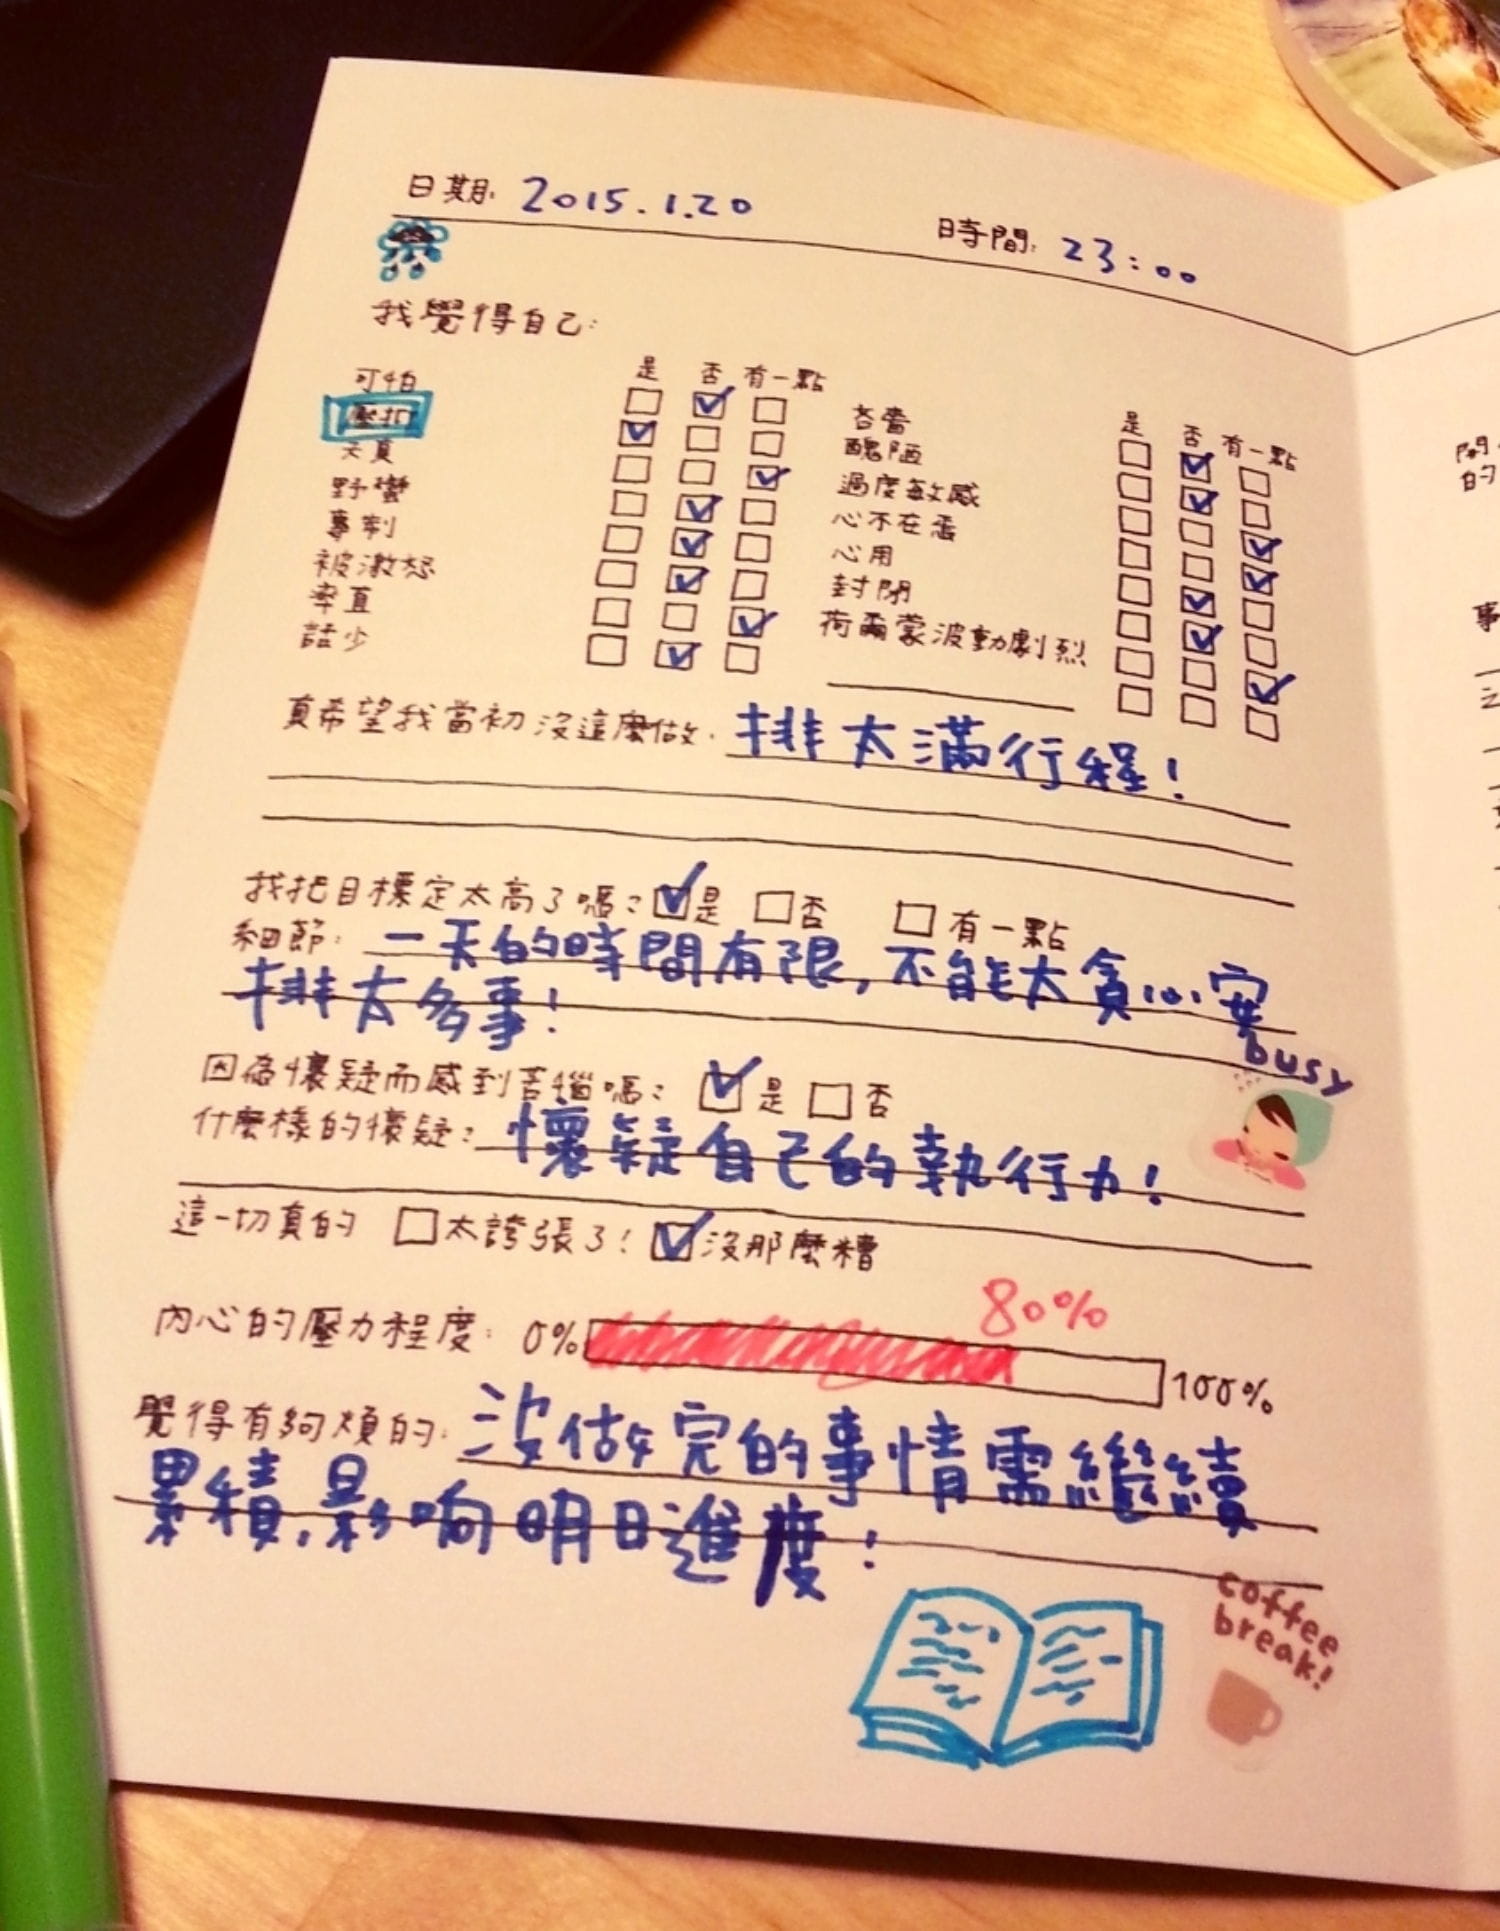 日期: 2015.1.20 時間: 23:00
我覺得自己:
是 否 有一點
可怕
壓抑
天真
野蠻
專制
被激怒
率直
話少
是 否 有一點
吝嗇
醜陋
過度敏感
心不在焉
心用
封閉
荷爾蒙波動劇烈
真希望我當初沒這麼做: 排太滿行程!
我把目標定太高了嗎? 是 否 有一點
細節: 一天的時間有限,不能太貪心安
排太多事!
busy
因為懷疑而感到苦惱嗎? 是 否
什麼樣的懷疑? 懷疑自己的執行力!
這一切真的 太誇張了! 沒那麼糟
80%
內心的壓力程度: 0% 100%
覺得有夠煩的: 沒做完的事情需繼續
累積,影响明日進度!
coffee
break!
的
事